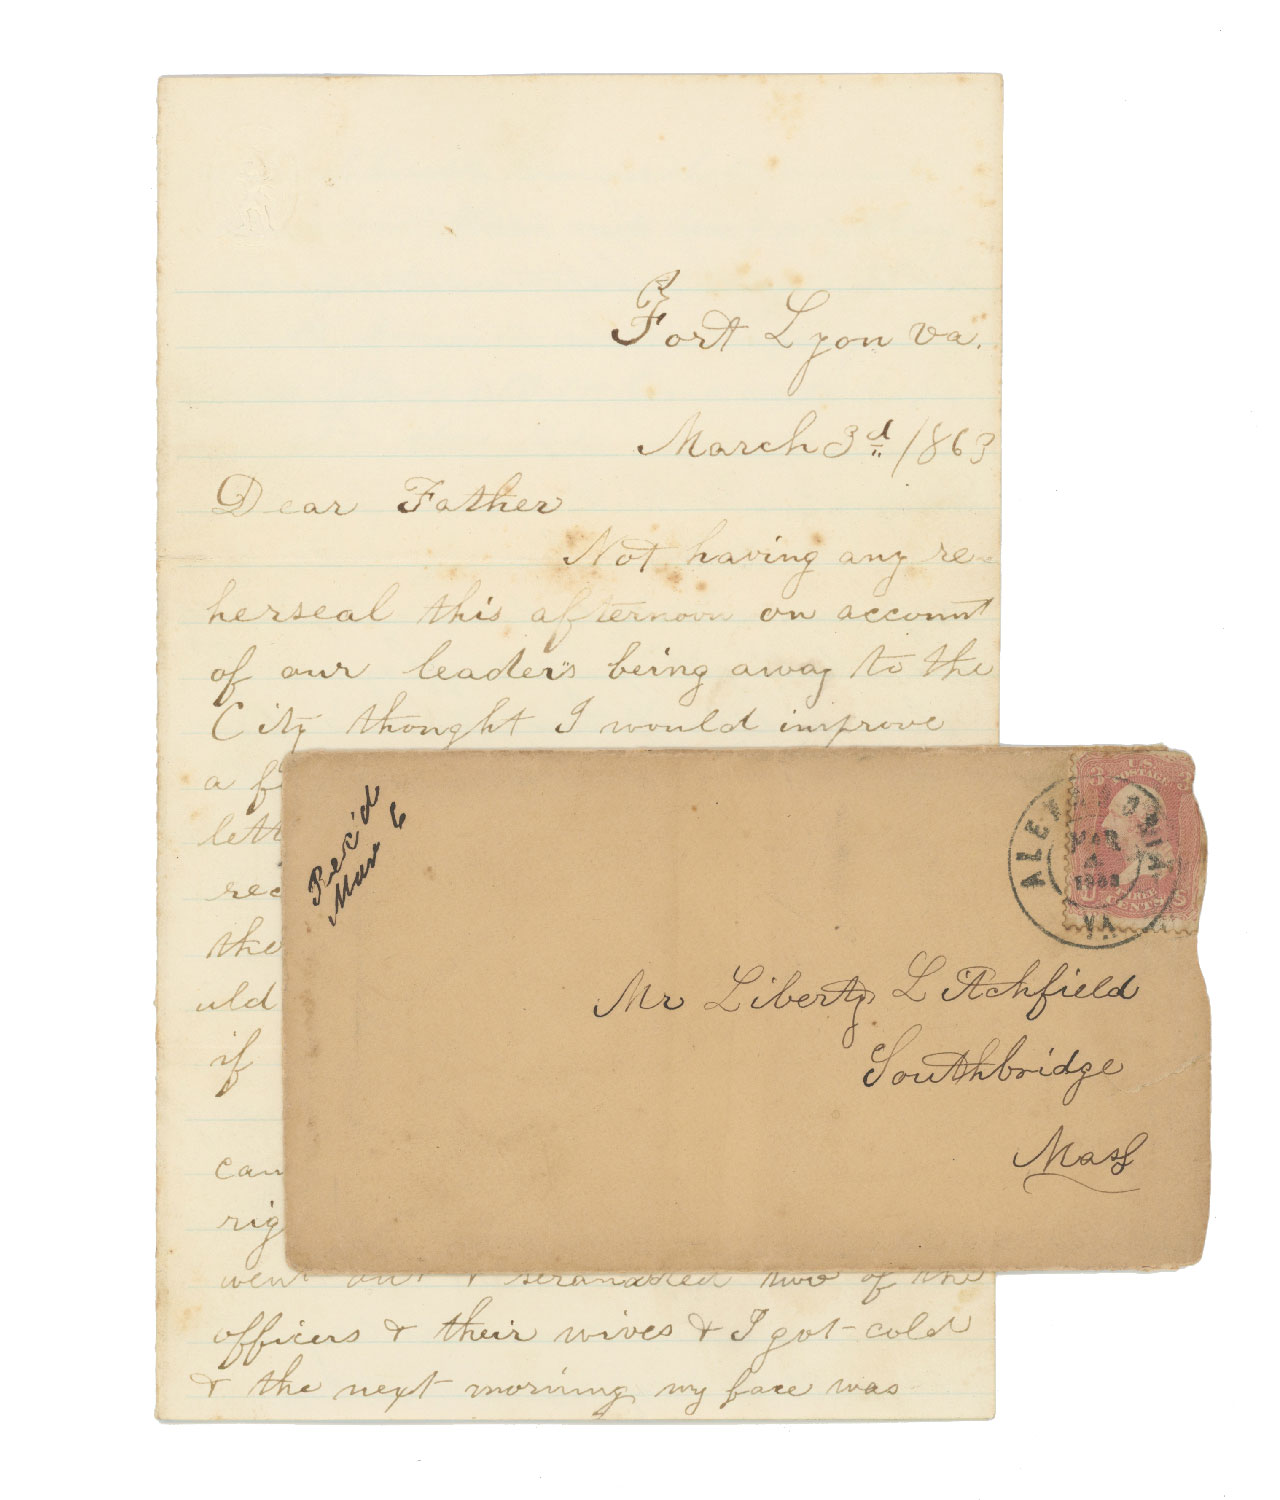 Fort Lyon Va.
March 3d /863
Dear Father
Not having any re-
herseal this afternoon on account
of our leaders being away to the
City thought I would improve
a f
lett
rec
the
uld
if
can
rig
went out & seranaded two of the
officers & their wives & I got cold
& the next morning my face was
Rec'd
Mar 6
U.S.
POSTAGE
3 3
THREE
CENTS
ALEXANDRIA
MAR
4
1863
VA
Mr Liberty Litchfield
Southbridge
Mass